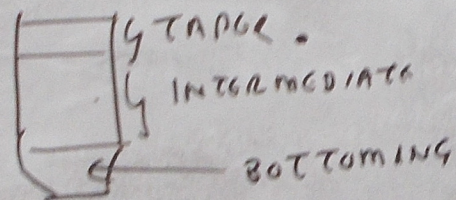 TAPER.
INTERMEDIATE
BOTTOMING